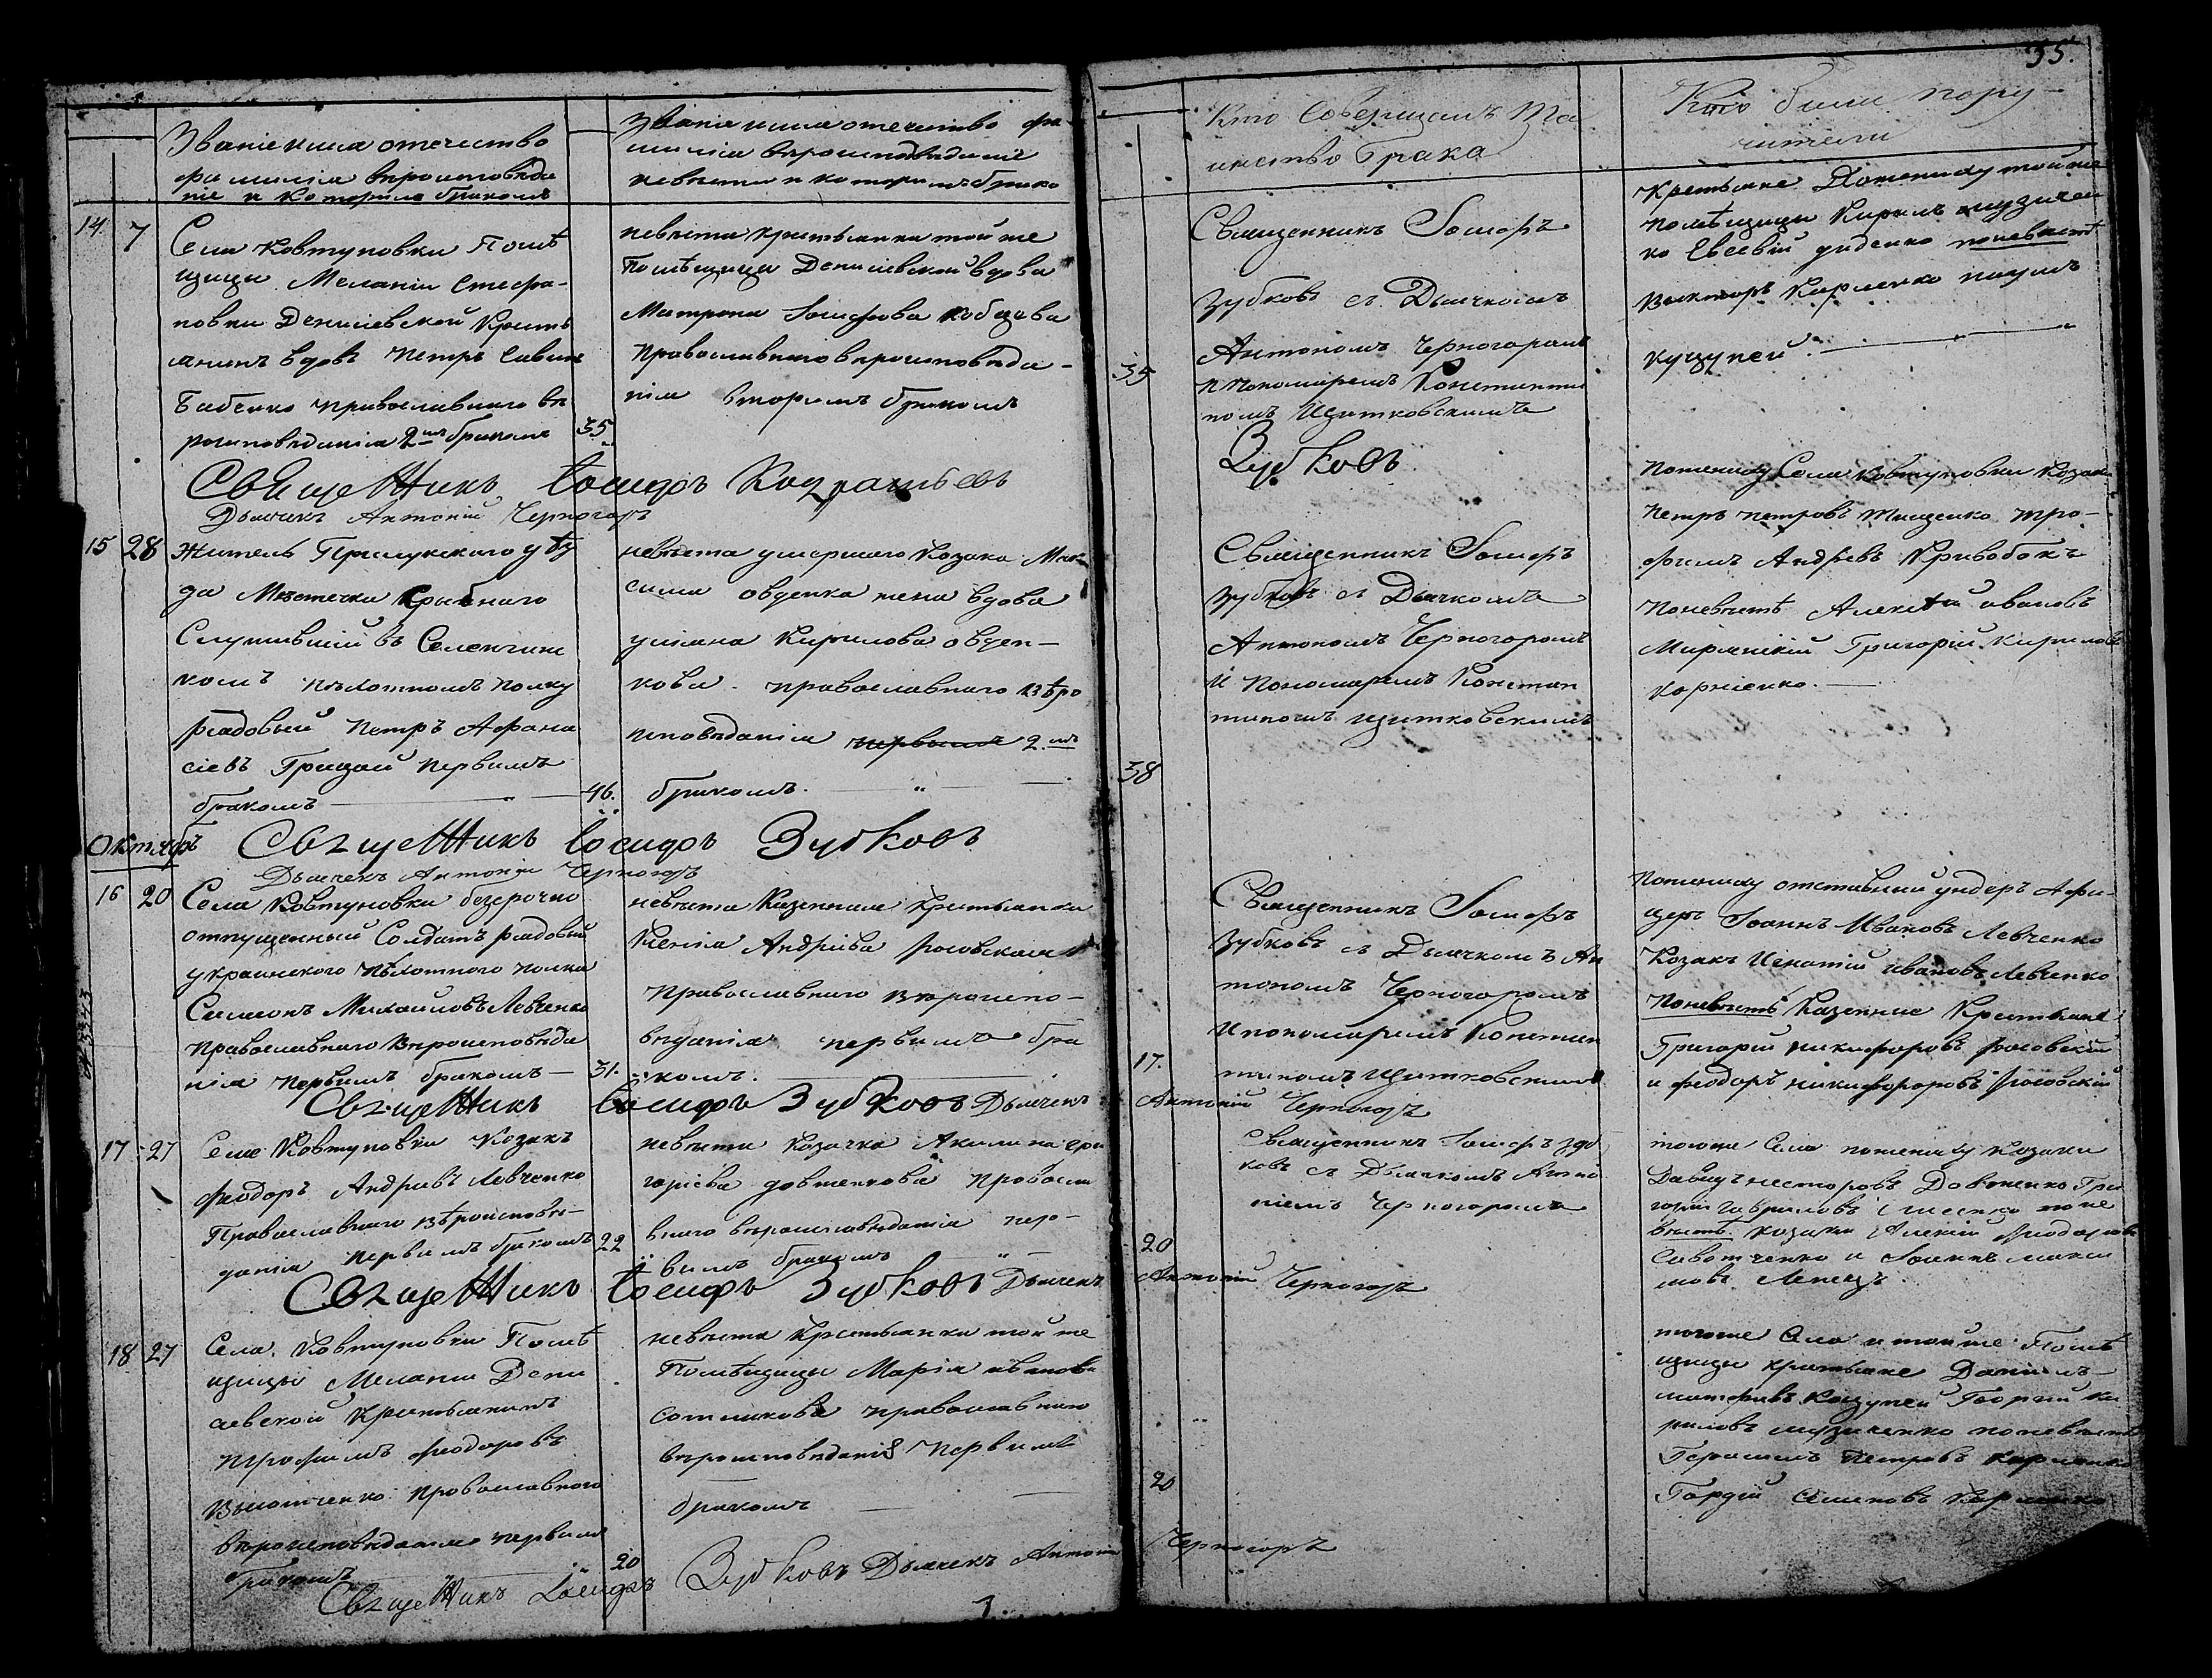 35.
Званіе имя отечество
фамиліа вѣроисповѣда
ніе и которимъ бракомъ
Званіе имя отечество фа
миліа вѣроисповѣданіе
невѣсти и которимъ бракъ
Кто Совершалъ Та
инство брака
Кто били пору-
чители
14 7
Села Ковтуновки Помѣ
щици Меланіи Стефа-
новни Денисевской Крестьъ
анинъ вдовъ Петръ Савинъ
Бабенко православнаго вѣ
роисповѣданіа 2мъ бракомъ
35
невѣста крестьянка тойже
Помѣщици Денисевской вдова
Матрона Іосифова
Православнаго вѣроисповѣда-
ніа вторимъ бракомъ
35
Священникъ Іосифъ
Зубковъ съ Дьячкомъ
Антономъ Черногоромъ
и пономаремъ Константи
номъ Щитковскимъ
Зубковъ
Крестьяне Поженику тойже
помѣщици Кирилъ музичен
ко Евсевій диденко поневѣстѣ
Викторъ Карпенко наумъ
куцупей.
Священникъ Іосифъ
Дьячекъ Антоній Черногоръ
15 28
Житель Прилукского уѣз
да Мѣстечка Срибного
Служившій въ Селенгинс
комъ пѣхотномъ полку
рядовый Петръ Афана
сіевъ Грицай Первимъ
бракомъ
46.
невѣста умершаго Козака Мак
сима овденка жена вдова
уліяна Кирилова овден-
кова православнаго вѣро
исповѣданіа первимъ 2.мъ
бракомъ.
38
Священникъ Іосифъ
Зубковъ съ Дьячкомъ
Антономъ Черногоромъ
и Пономаремъ Констан
тиномъ щитковскимъ
Поженику Села Ковтуновки Козаки
Петръ Петровъ Тищенко Тро-
фимъ Андрѣевъ Кривобокъ
Поневѣстѣ Алексѣй ивановъ
Григорій Кириловъ
Корніенко.
Священникъ Іосифъ Зубковъ
Дьячекъ Антоній Черногоръ
Октябръ
16 20
Села Ковтуновки безсрочно
отпущенный Солдатъ рядовый
украинского пѣхотного полка
Симеонъ Михаиловъ Левченко
православнаго Вѣроисповѣда
ніа первимъ бракомъ
31.
невѣста Казенная Крестьянка
Ксеніа Андріева Росовская
Православнаго вѣроиспо-
вѣданіа первимъ бра
комъ.
17.
Священникъ Іосифъ
Зубковъ съ Дьячкомъ Ан
тономъ Черногоромъ
и пономаремъ Констан
тиномъ щитковскимъ
Поженику отставний ундеръ Афи-
церъ Іоаннъ Ивановъ Левченко
Козакъ Игнатій ивановъ Левченко
Поневѣстѣ Казенние Крестьяне
Григорій никифоровъ росовскій
и феодоръ никифоровъ росовскій
Священникъ Іосифъ Зубковъ Дьячекъ Антоній Черногоръ
17 27
Села Ковтуновки Козакъ
феодоръ Андріевъ Левченко
Православнаго вѣроисповѣ-
даніа первимъ бракомъ
22
невѣста козачка Акилина гри
горіева довженкова православ
наго вѣроисповѣданіа пер-
вимъ бракомъ
20
Священникъ Іосифъ зуб
ковъ съ Дьячкомъ Анто
ніемъ Черногоромъ
тогоже Села поженику козаки
Давидъ несторовъ Довженко Гри
горій Гавриловъ поне
вѣстѣ козаки Алексій феодоровъ
Савотченко и Іоаннъ макси
мовъ
Священникъ Іосифъ Зубковъ Дьячекъ Антоній Черногоръ
18 27
Села Ковтуновки Помѣ
щици Меланіи Дени
севской Крестьянинъ
Трофимъ феодоровъ
православного
вѣроисповѣданіа первимъ
бракомъ
20
невѣста Крестьянка тойже
Помѣщици Маріа иванова
сотникова православнаго
вѣроисповѣданія первимъ
бракомъ
20
тогоже Села и тойже Помѣ
щици крестьяне Даніилъ
Куцупей Георгій Ки
риловъ музиченко поневѣстѣ
Герасимъ Петровъ Карпенко
Гордій Семеновъ Карпенко
Священникъ Іосифъ Зубковъ Дьячекъ Антоній Черногоръ